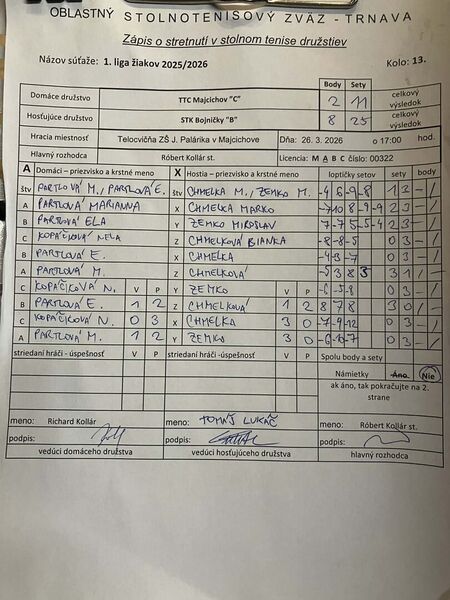 OBLASTNÝ STOLNOTENISOVÝ ZVÄZ - TRNAVA
Zápis o stretnutí v stolnom tenise družstiev
Názov súťaže: 1. liga žiakov 2025/2026 Kolo: 13.
Body Sety
Domáce družstvo TTC Majcichov "C" 2 11 celkový výsledok
Hosťujúce družstvo STK Bojničky "B" 8 25 celkový výsledok
Hracia miestnosť Telocvičňa ZŠ J. Palárika v Majcichove Dňa: 26. 3. 2026 o 17:00 hod.
Hlavný rozhodca Róbert Kollár st. Licencia: M A B C číslo: 00322
A Domáci – priezvisko a krstné meno X Hostia – priezvisko a krstné meno loptičky setov sety body
štv PARTLOVÁ M., PARTLOVÁ E. štv CHMELKA M., ZEMKO M. -4 6 -9 -8 1 3 - /
A PARTLOVÁ MARIANNA X CHMELKA MARKO -7 10 8 -9 -9 2 3 - /
B PARTLOVÁ ELA Y ZEMKO MIROSLAV -7 7 5 -5 -4 2 3 - /
C KOPÁČIKOVÁ NELA Z CHMELKOVÁ BIANKA -8 -8 -5 0 3 - /
B PARTLOVÁ E. X CHMELKA -4 -3 -7 0 3 - /
A PARTLOVÁ M. Z CHMELKOVÁ -5 3 8 3 3 1 / -
C KOPÁČIKOVÁ N. V P Y ZEMKO V P -6 -5 -9 0 3 - /
B PARTLOVÁ E. 1 2 Z CHMELKOVÁ 1 2 8 7 8 3 0 / -
C KOPÁČIKOVÁ N. 0 3 X CHMELKA 3 0 -7 -9 -12 0 3 - /
A PARTLOVÁ M. 1 2 Y ZEMKO 3 0 -6 -10 -7 0 3 - /
striedaní hráči - úspešnosť V P striedaní hráči -úspešnosť V P Spolu body a sety
Námietky Áno Nie
ak áno, tak pokračujte na 2. strane
meno: Richard Kollár meno: TOMÁŠ LUKÁČ meno: Róbert Kollár st.
podpis: podpis: podpis:
vedúci domáceho družstva vedúci hosťujúceho družstva hlavný rozhodca